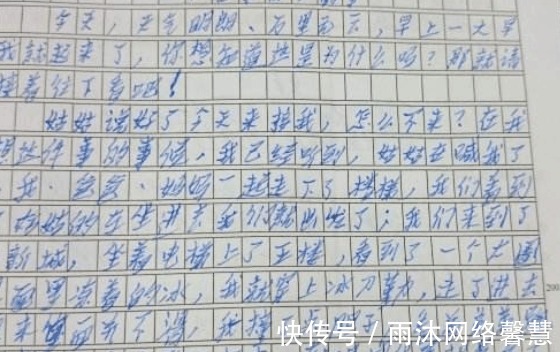 今天，天气晴朗、万里无云，早上一大早
我就起来了，你想知道这是为什么吗？那就请
接着往下看吧！
姑姑说好了今天来接我，怎么不来？在我
想这件事的事情，我已经听到，姑姑在喊我了
我、爸爸、妈妈一起走下了楼梯，我们看到
了姑姑的车坐进去我们就出发了；我们来到了
新城，坐着电梯上了五楼，看到了一个大圆
里冻着的冰，我就穿上冰刀鞋，走了进去
200
来
快传号 / 雨沐网络馨慧